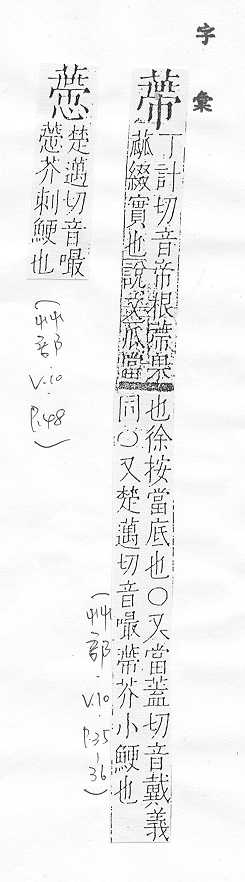 字彙
蔕
丁計切音帝根蔕果
蓏綴實也說文瓜當
也徐按當底也〇又當蓋切音戴義
同〇又楚邁切音嘬蔕芥小鯁也
(艸部.V.10.P.35-36)
楚邁切音嘬
芥刺鯁也
(艸部.V.10.P.48)